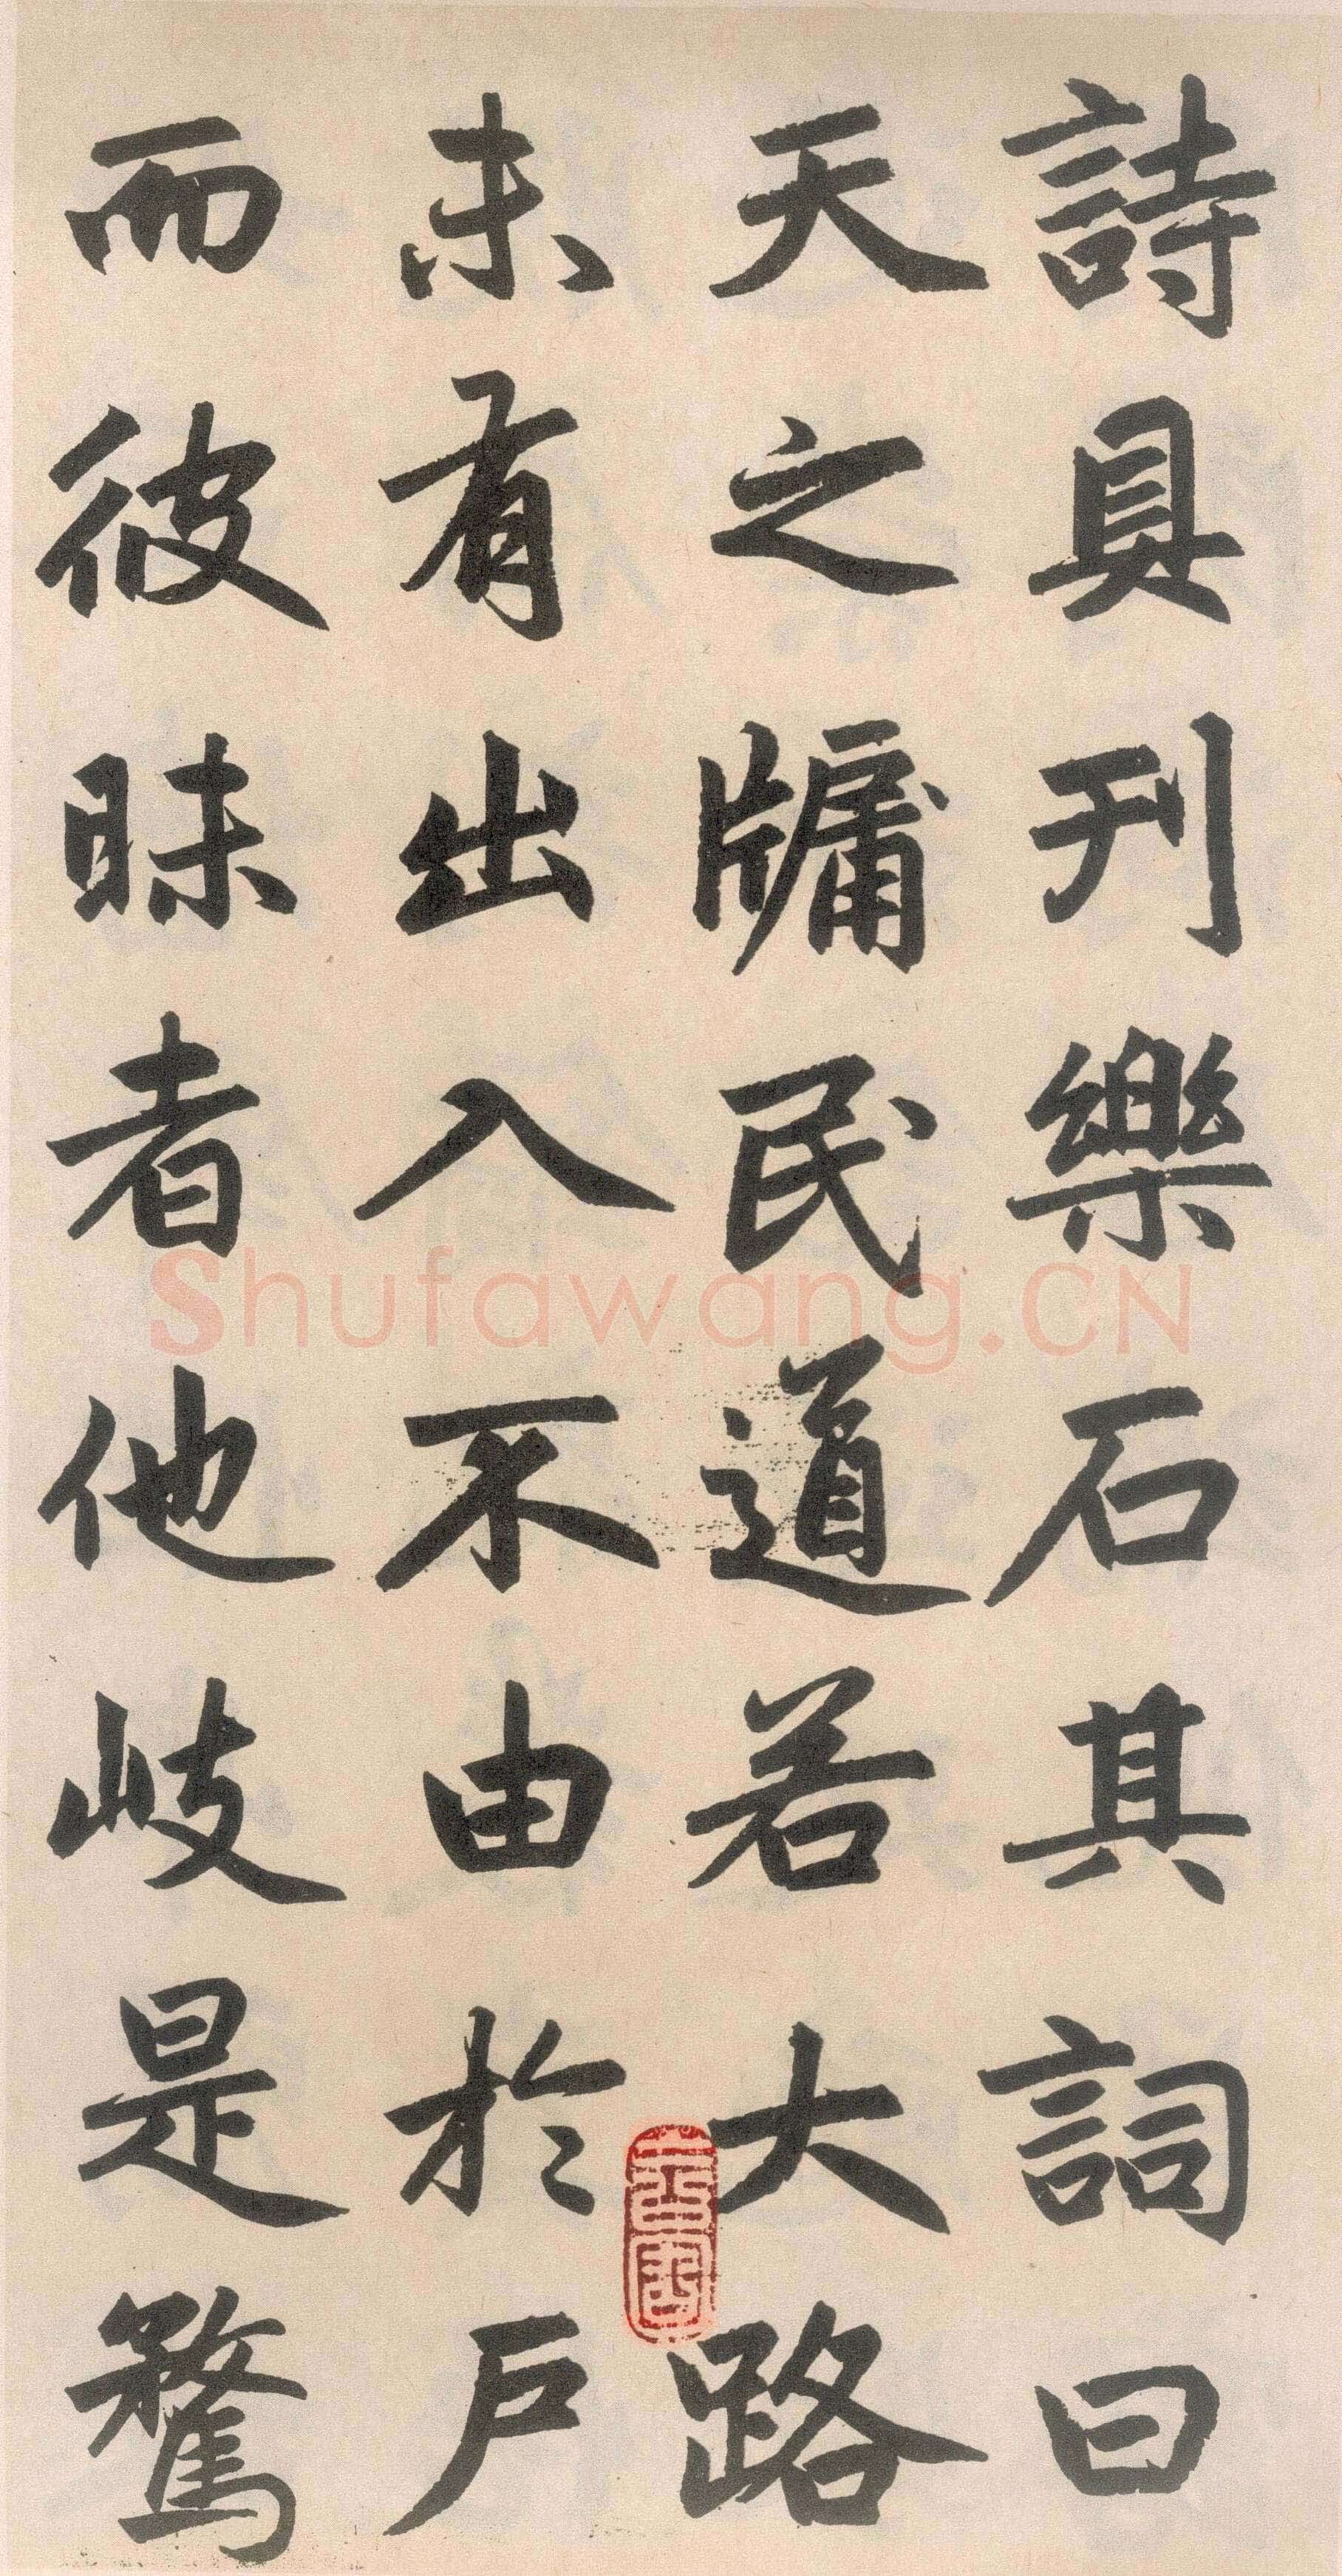 詩具刊樂石其詞曰
天之牖民道若大路
未有出入不由於戶
而彼昧者他岐是騖
Shufawang.CN